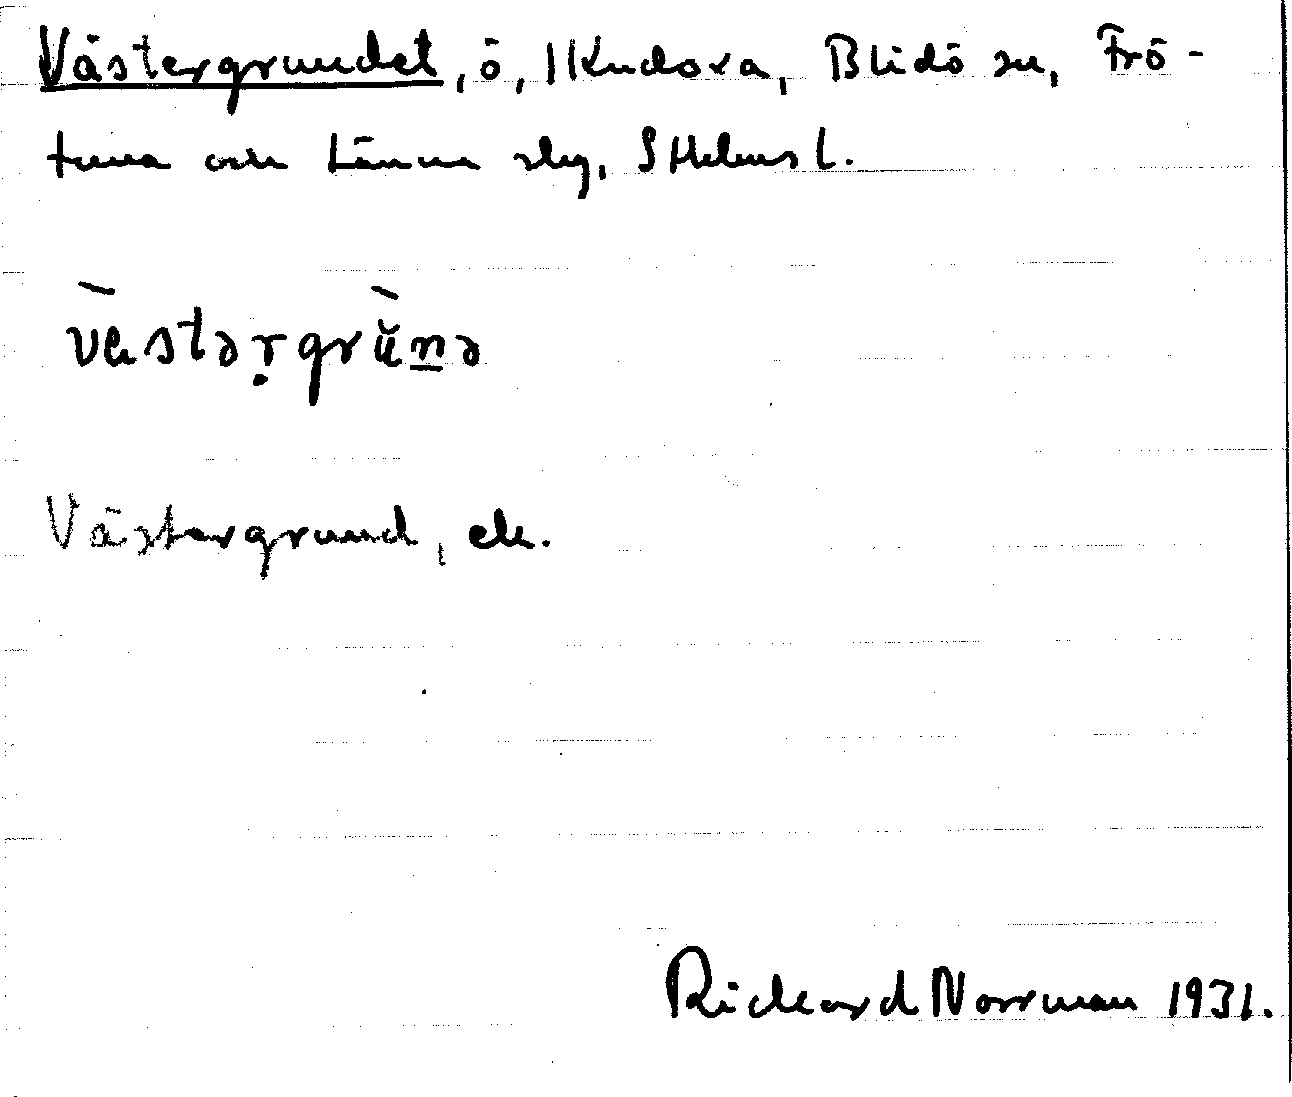 Västergrundet, ö, 1 Kudoxa, Blidö sn, Frö-
tuna och Länna slg, Sthlms l.
västərgrŭnə
Västergrund, ek.
Rickard Norrman 1931.